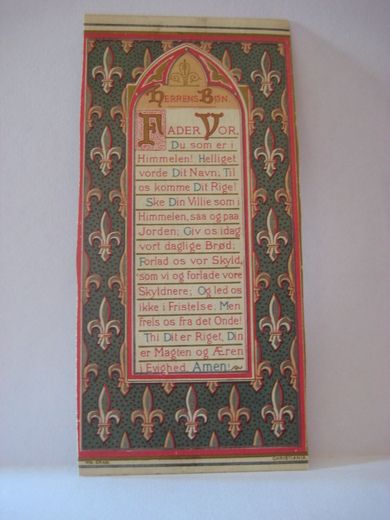 HERRENS BØN.
FADER VOR,
Du som er i
Himmelen! Helliget
vorde Dit Navn; Til
os komme Dit Rige!
Ske Din Villie som i
Himmelen, saa og paa
Jorden; Giv os idag
vort daglige Brød;
Forlad os vor Skyld,
som vi og forlade vore
Skyldnere; Og led os
ikke i Fristelse, Men
frels os fra det Onde!
Thi Dit er Riget, Din
er Magten og Æren
i Evighed. Amen!
CHRISTIANIA